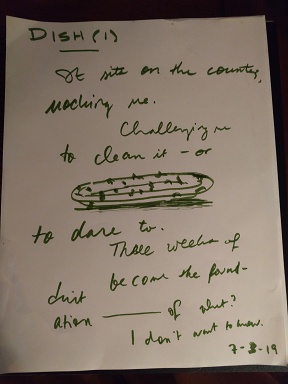 DISH (1)
It sits on the counter,
mocking me.
Challenging me
to clean it - or
to dare to.
Those weeks of
dirt become the found-
ation ——— of what?
I don't want to know.
7-3-19